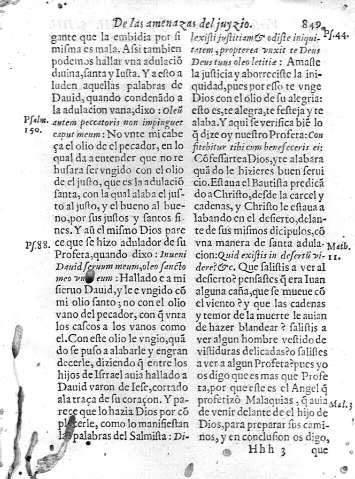 De las amenazas del juyzio. 849.
gante que la embidia por si
misma es mala. Assi tambien
podemos hallar vna adulaciõ
diuina, santa y Iusta. Y a esto a
luden aquellas palabras de
Dauid, quando condenãdo a
la adulacion vana, dixo: Oleũ
autem peccatoris non impinguet
caput meum: No vnte mi cabe
ça el olio del pecador, en lo
qual da a entender que no re
husara ser vngido con el olio
del justo, que es la adulació
santa, con la qual alaba el jus-
to al justo, y el bueno al bue-
no, por sus justos y santos fi-
nes. Y aũ el mismo Dios pare
ce que se hizo adulador de su
Profeta, quando dixo: Inueni
Dauid seruum meum, oleo sancto
meo vnxi eum: Hallado e a mi
sieruo Dauid, y le e vngido cõ
mi olio santo; no con el olio
vano del pecador, con q̃ vnta
los cascos a los vanos como
el. Con este olio le vngio, quã
do se puso a alabarle y engran
decerle, diziendo q̃ entre los
hijos de Israel auia hallado a
Dauid varon de Iese, cortado
a la traça de su coraçon. Y pa-
rece que lo hazia Dios por cõ
plazerle, como lo manifiestan
las palabras del Salmista: Di-
Psalm.
150.
Ps.88.
lexisti justitiam & odiste iniqui
tatem, propterea vnxit te Deus
Deus tuus oleo letitiæ: Amaste
la justicia y aborreciste la ini-
quidad, pues por esso te vnge
Dios con el olio de su alegria:
esto es, te alegra, te festeja y te
alaba. Y aqui se verifica biẽ lo
q̃ dize oy nuestro Profera: Con
fitebitur tibi cum benefeceris ei:
Cõfessarte a Dios, y te alabara
quãdo le hizieres buen serui
cio. Estaua el Bautista predicã
do a Christo, desde la carcel y
cadenas, y Christo le estaua a
labando en el desierto, delan-
te de sus mismos dicipulos, cõ
vna manera de santa adula-
cion: Quid existis in desertũ vi-
dere? &c. Que salistis a ver al
desierto? pensastes q̃ era Iuan
alguna caña, que se mueue cõ
el viento? y que las cadenas
y temor de la muerte le auian
de hazer blandear? salistis a
ver algun hombre vestido de
vistiduras delicadas? o salistes
a ver a algun Profeta? pues yo
os digo que es mas que Profe
ta, por que este es el Angel q̃
profetizò Malaquias, q̃ auia
de venir delante de el hijo de
Dios, para preparar sus cami-
nos, y en conclusion os digo,
Ps.44.
Math.
11.
Mal.3
Hhh 3 que